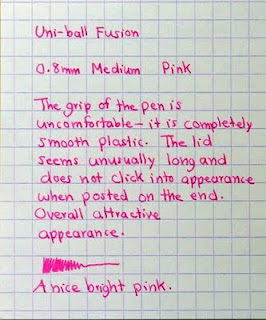 Uni-ball Fusion
0.8mm Medium Pink
The grip of the pen is
uncomfortable - it is completely
smooth plastic. The lid
seems unusually long and
does not click into appearance
when posted on the end.
Overall attractive
appearance.
A nice bright pink.